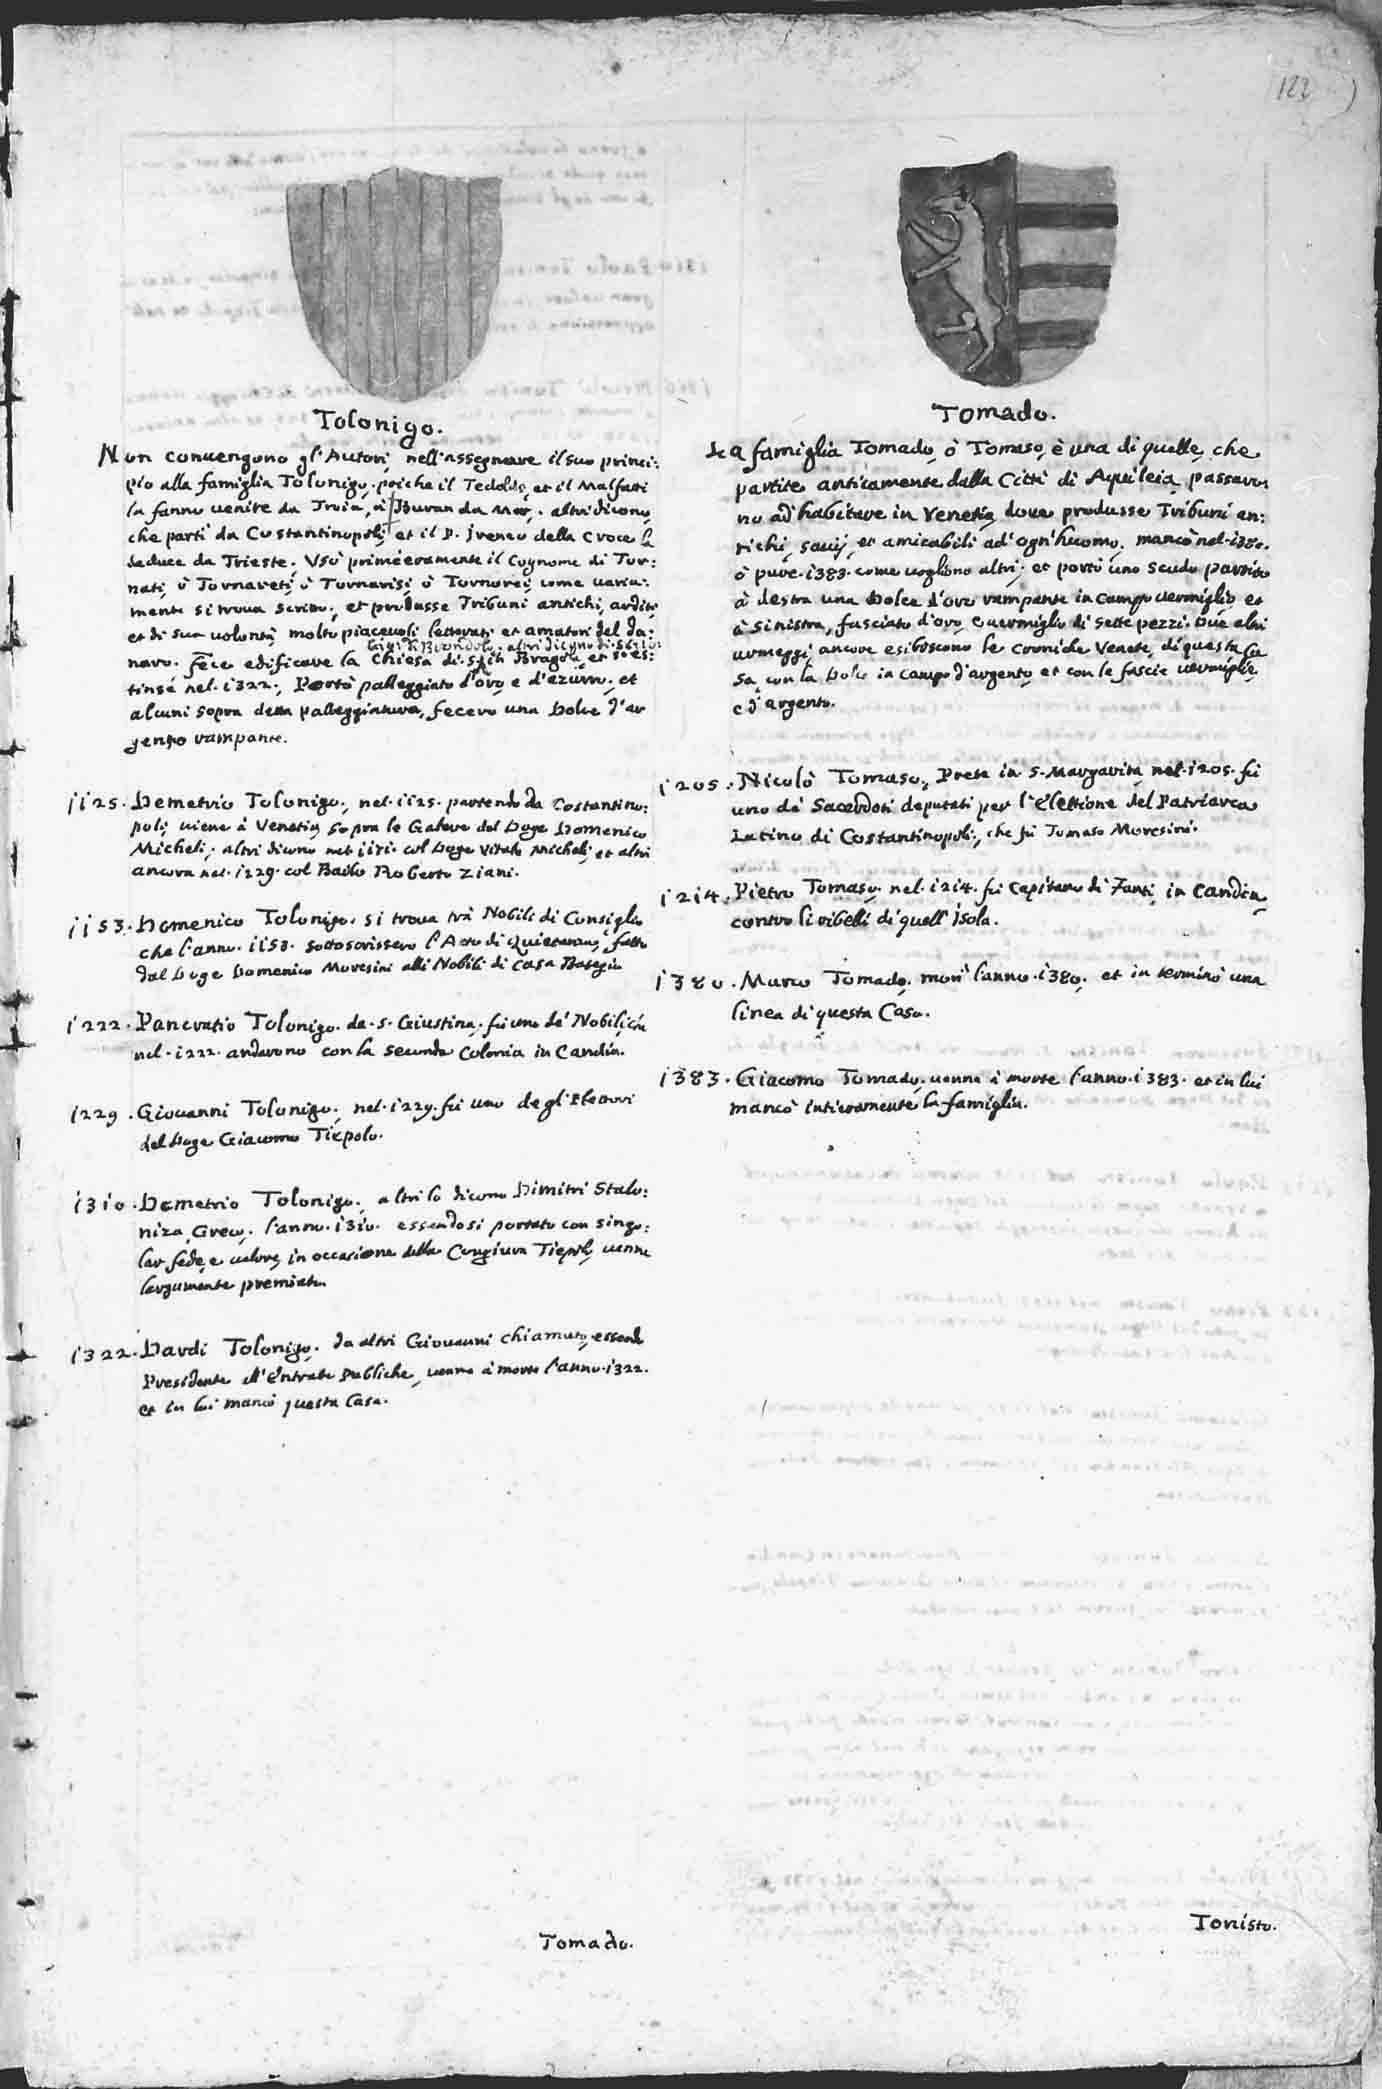 122
Tolonigo.
Non conuengono gl'Autori nell'assegnare il suo princi:
pio alla famiglia Tolonigo. poiche il Tedoldo, et il Malfatti
la fanno uenire da Troia, ò Buran da Mar, altri dicono,
che partì da Costantinopoli, et il P. Ireneo della Croce la
deduce da Trieste. Usò primieramente il Cognome di Tor:
nati, ò Tornareti, ò Tornarisi, ò Tornorei, come uaria:
mente si troua scritto, et produsse Tribuni antichi, arditi
et di sua uolontà, molto piaceuoli, letterati et amatori del da:
altri dicono di
naro. Fece edificare la Chiesa di Bragola, et s'es:
tinse nel. 1322. Portò palleggiato d'oro e d'azurro, et
alcuni sopra detta palleggiatura, fecero una Dolce d'ar
gento rampante.
1125. Demetrio Tolonigo, nel. 1125. partendo da Costantino:
poli, uiene à Venetia sopra le Galere del Doge Domenico
Micheli, altri dicono nel 1171. col Doge Vitale Micheli, et altri
ancora nel. 1229. col Bailo Roberto Ziani.
1153. Domenico Tolonigo. si troua trà Nobili di Consiglio
che l'anno. 1153. sottoscrissero l'Atto di Quietanza, fatto
dal Doge Domenico Moresini alli Nobili di Casa Basegio
1222. Pancratio Tolonigo. da. S. Giustina, fù uno de' Nobili, che
nel. 1222. andarono con la seconda Colonia in Candia.
1229. Giouanni Tolonigo, nel. 1229. fù uno degl'Elettori
del Doge Giacomo Tiepolo.
1310. Demetrio Tolonigo, altri lo dicono Dimitri Stalo:
niza, Greco, l'anno. 1310. essendosi portato con singo:
lar fede, e ualore, in occasione della Congiura Tiepola, uenne
largamente premiato.
1322. Dardi Tolonigo. da altri Giouanni chiamato, essendo
Presidente all'Entrate Publiche, uenne à morte l'anno. 1322.
et in lui mancò questa Casa.
Tomado.
Tomado.
La famiglia Tomado, ò Tomaso, è una di quelle, che
partite anticamente dalla Città di Aquileia, passaro
no ad habitare in Venetia, doue produsse Tribuni an:
tichi, sauij, et amicabili ad'ogn'huomo. mancò nel. 1380.
ò pure. 1383. come uogliono altri, et portò uno scudo partito
à destra una Dolce d'oro rampante in campo uermiglio, et
à sinistra, fasciato d'oro, e uermiglio di sette pezzi. Due altri
armeggi, ancora esibiscono le Croniche Venete, di questa Ca
sa, con la Dolce in campo d'argento, et con le fascie uermiglie,
e d'argento.
1205. Nicolò Tomaso, Prete in. S. Margarita, nel. 1205. fù
uno de' Sacerdoti deputati per l'Elettione del Patriarca
Latino di Costantinopoli, che fù Tomaso Moresini.
1214. Pietro Tomaso. nel. 1214. fù Capitano di Fanti, in Candia,
contro li ribelli di quell'Isola.
1380. Marco Tomado, morì l'anno. 1380, et in terminò una
linea di questa Casa.
1383. Giacomo Tomado, uenne à morte l'anno. 1383. et in lui
mancò intieramente la famiglia.
Tonisto.